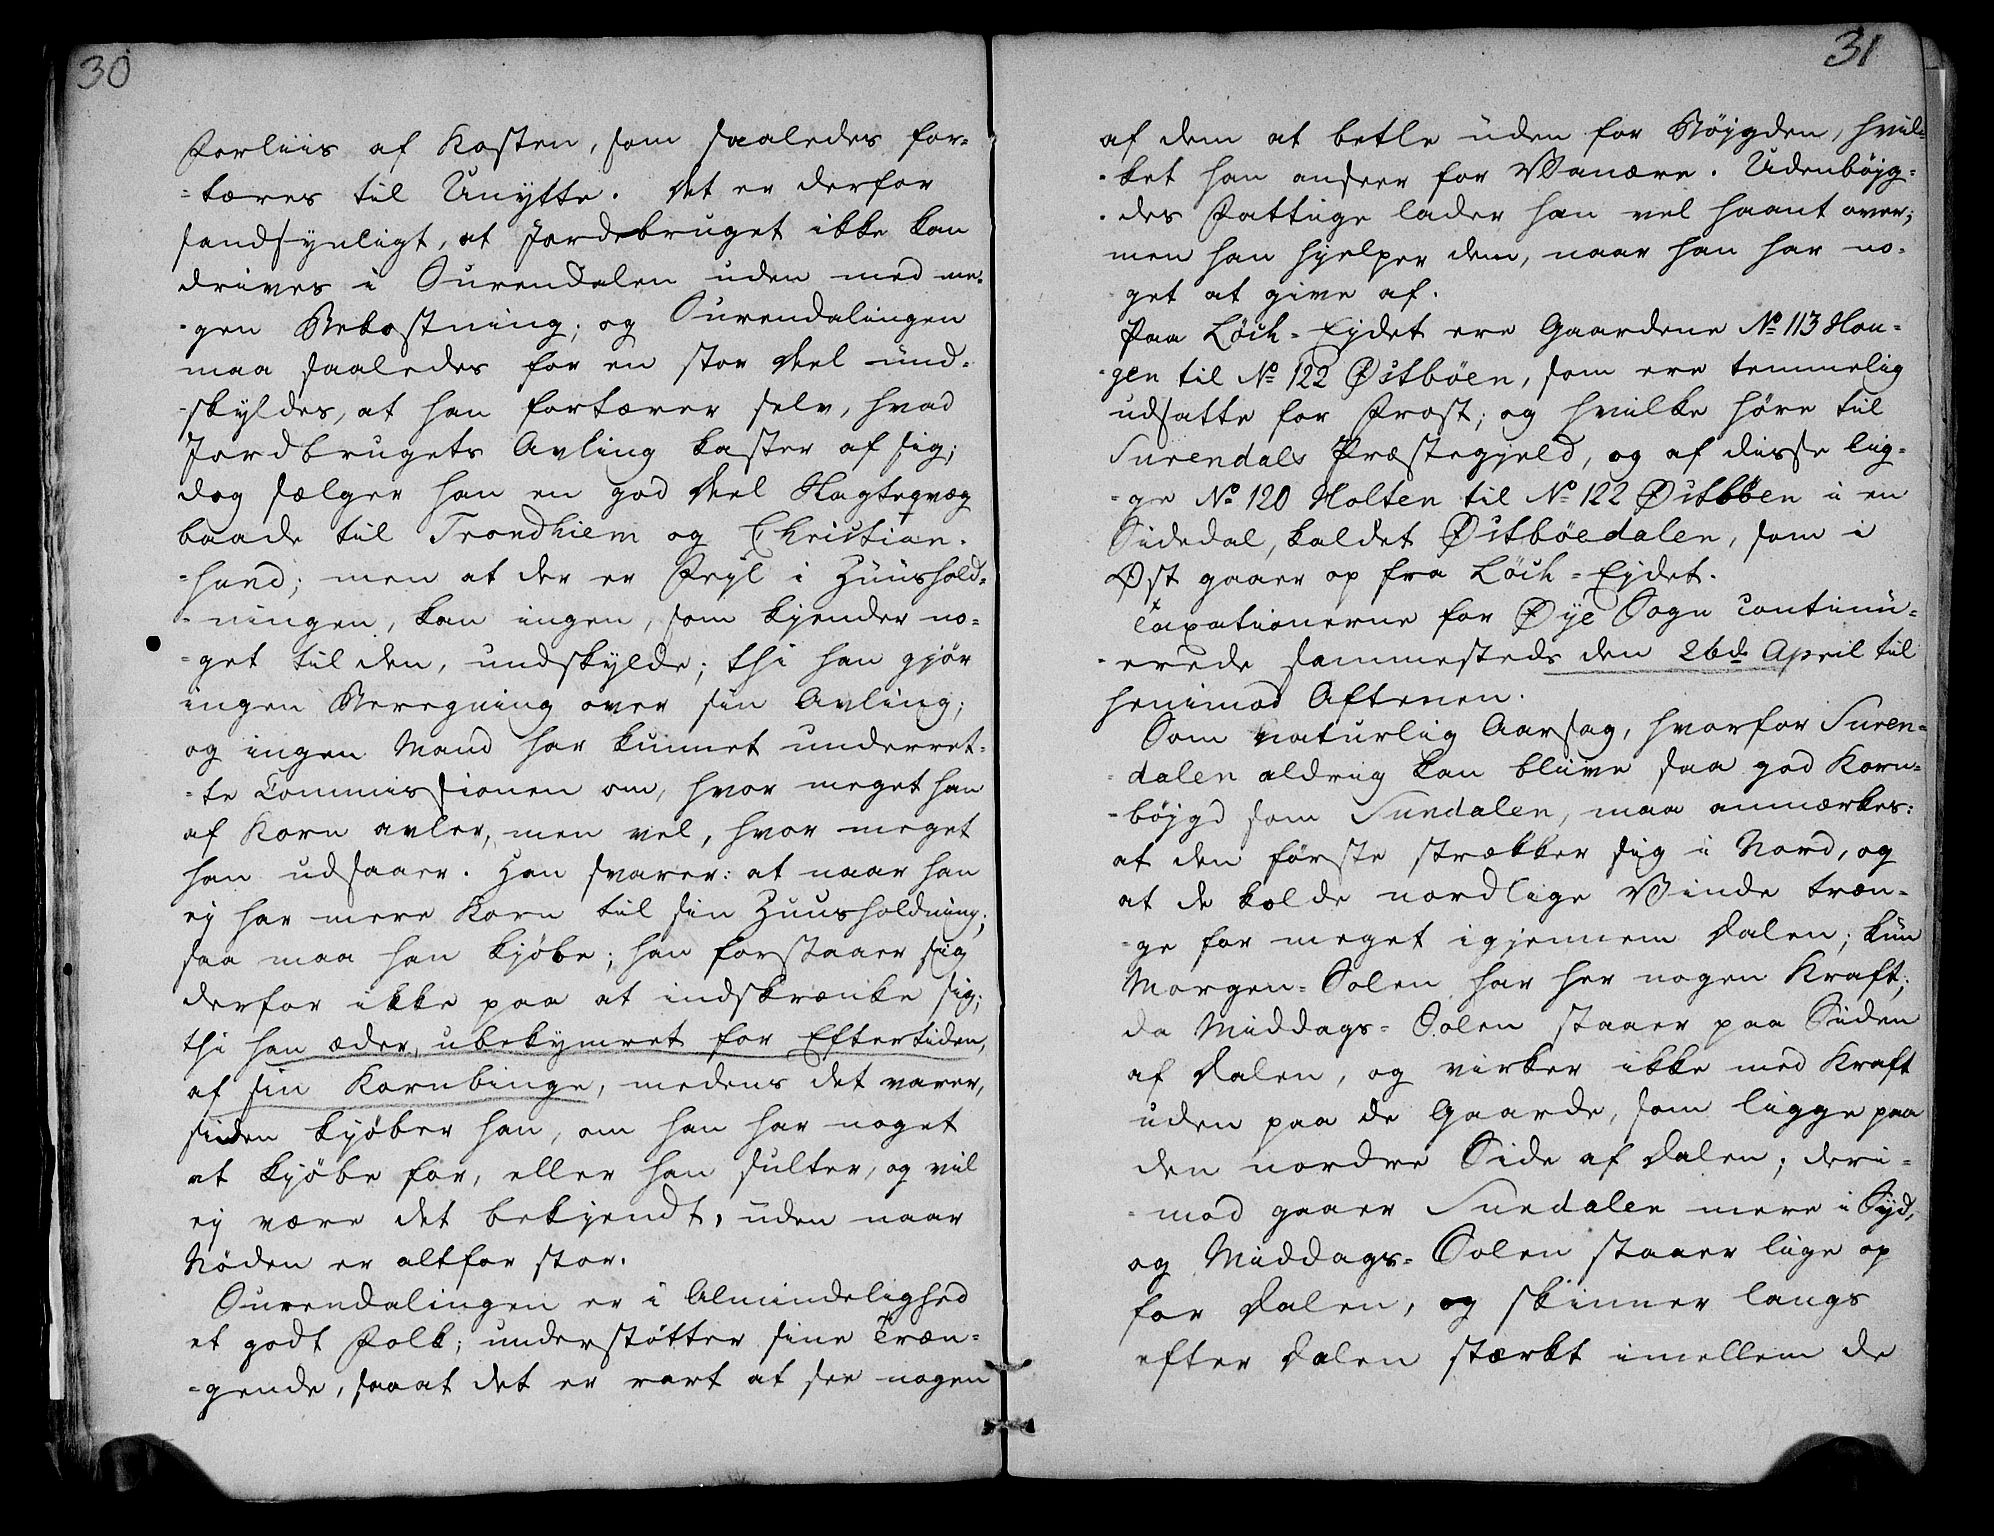 30
Forliis af Kosten, som saaledes for-
-tæres til Unytte. Det er derfor
sandsynligt, at Jordebruget ikke kan
drives i Surendalen uden med me-
-gen Bekostning; og Surendalingen
maa saaledes for en stor Deel und-
-skyldes, at han fortærer selv, hvad
Jordbrugets Avling kaster af sig;
dog sælger han en god Deel Slagteqvæg
baade til Trondhiem og Christian-
-sund; men at der er Fejl i Huushold-
-ningen, kan ingen, som kjender no-
-get til den, undskylde; thi han gjør
ingen Beregning over sin Avling;
og ingen Mand har kunnet underret-
-te Commissionen om, hvor meget han
af Korn avler, men vel, hvor meget
han udsaaer. Han svarer: at naar han
ej har mere Korn til sin Huusholdning,
saa maa han kjøbe; han forstaaer sig
derfor ikke paa at indskrænke sig;
thi han æder, ubekymret for Eftertiden,
af sin Kornbinge, medens det varer,
siden kjøber han, om han har noget
at kjøbe for, eller han sulter, og vil
ej være det bekjendt, uden naar
Nøden er altfor stor.
Surendalingen er i Almindelighed
et godt Folk; understøtter sine Træn-
-gende, saa at det er rart at see nogen
31
af dem at betle uden for Bøjgden, hvil-
-ket han anseer for Vanære. Udenbøjg-
-des Fattige lader han vel haant over;
men han hjelper dem, naar han har no-
-get at give af.
Paa Löch-Ejdet ere Gaardene No 113 Hou-
-gen til No 122 Østbøen, som ere temmelig
udsatte for Frost; og hvilke høre til
Surendals Præstegjeld, og af disse lig-
-ge No 120 Holten til No 122 Østbøen i en
Sidedal, kaldet Østbøedalen, som i
Øst gaaer op fra Löch-Ejdet.
Taxationerne for Øye Sogn continu-
-erede sammesteds den 26de April til
henimod Aftenen.
Som naturlig Aarsag, hvorfor Suren-
-dalen aldrig kan blive saa god Korn-
-bøjgd som Sundalen, maa anmærkes:
at den første strækker sig i Nord, og
at de kolde nordlige Vinde træn-
-ge for meget igjennem Dalen; kun
Morgen-Solen har her nogen Kraft;
da Middags-Solen staaer paa Siden
af Dalen, og virker ikke med Kraft
uden paa de Gaarde, som ligge paa
den nordre Side af Dalen; deri-
-mod gaaer Sundalen mere i Syd,
og Middags-Solen staaer lige op
for Dalen, og skinner langs
efter Dalen stærkt imellem de